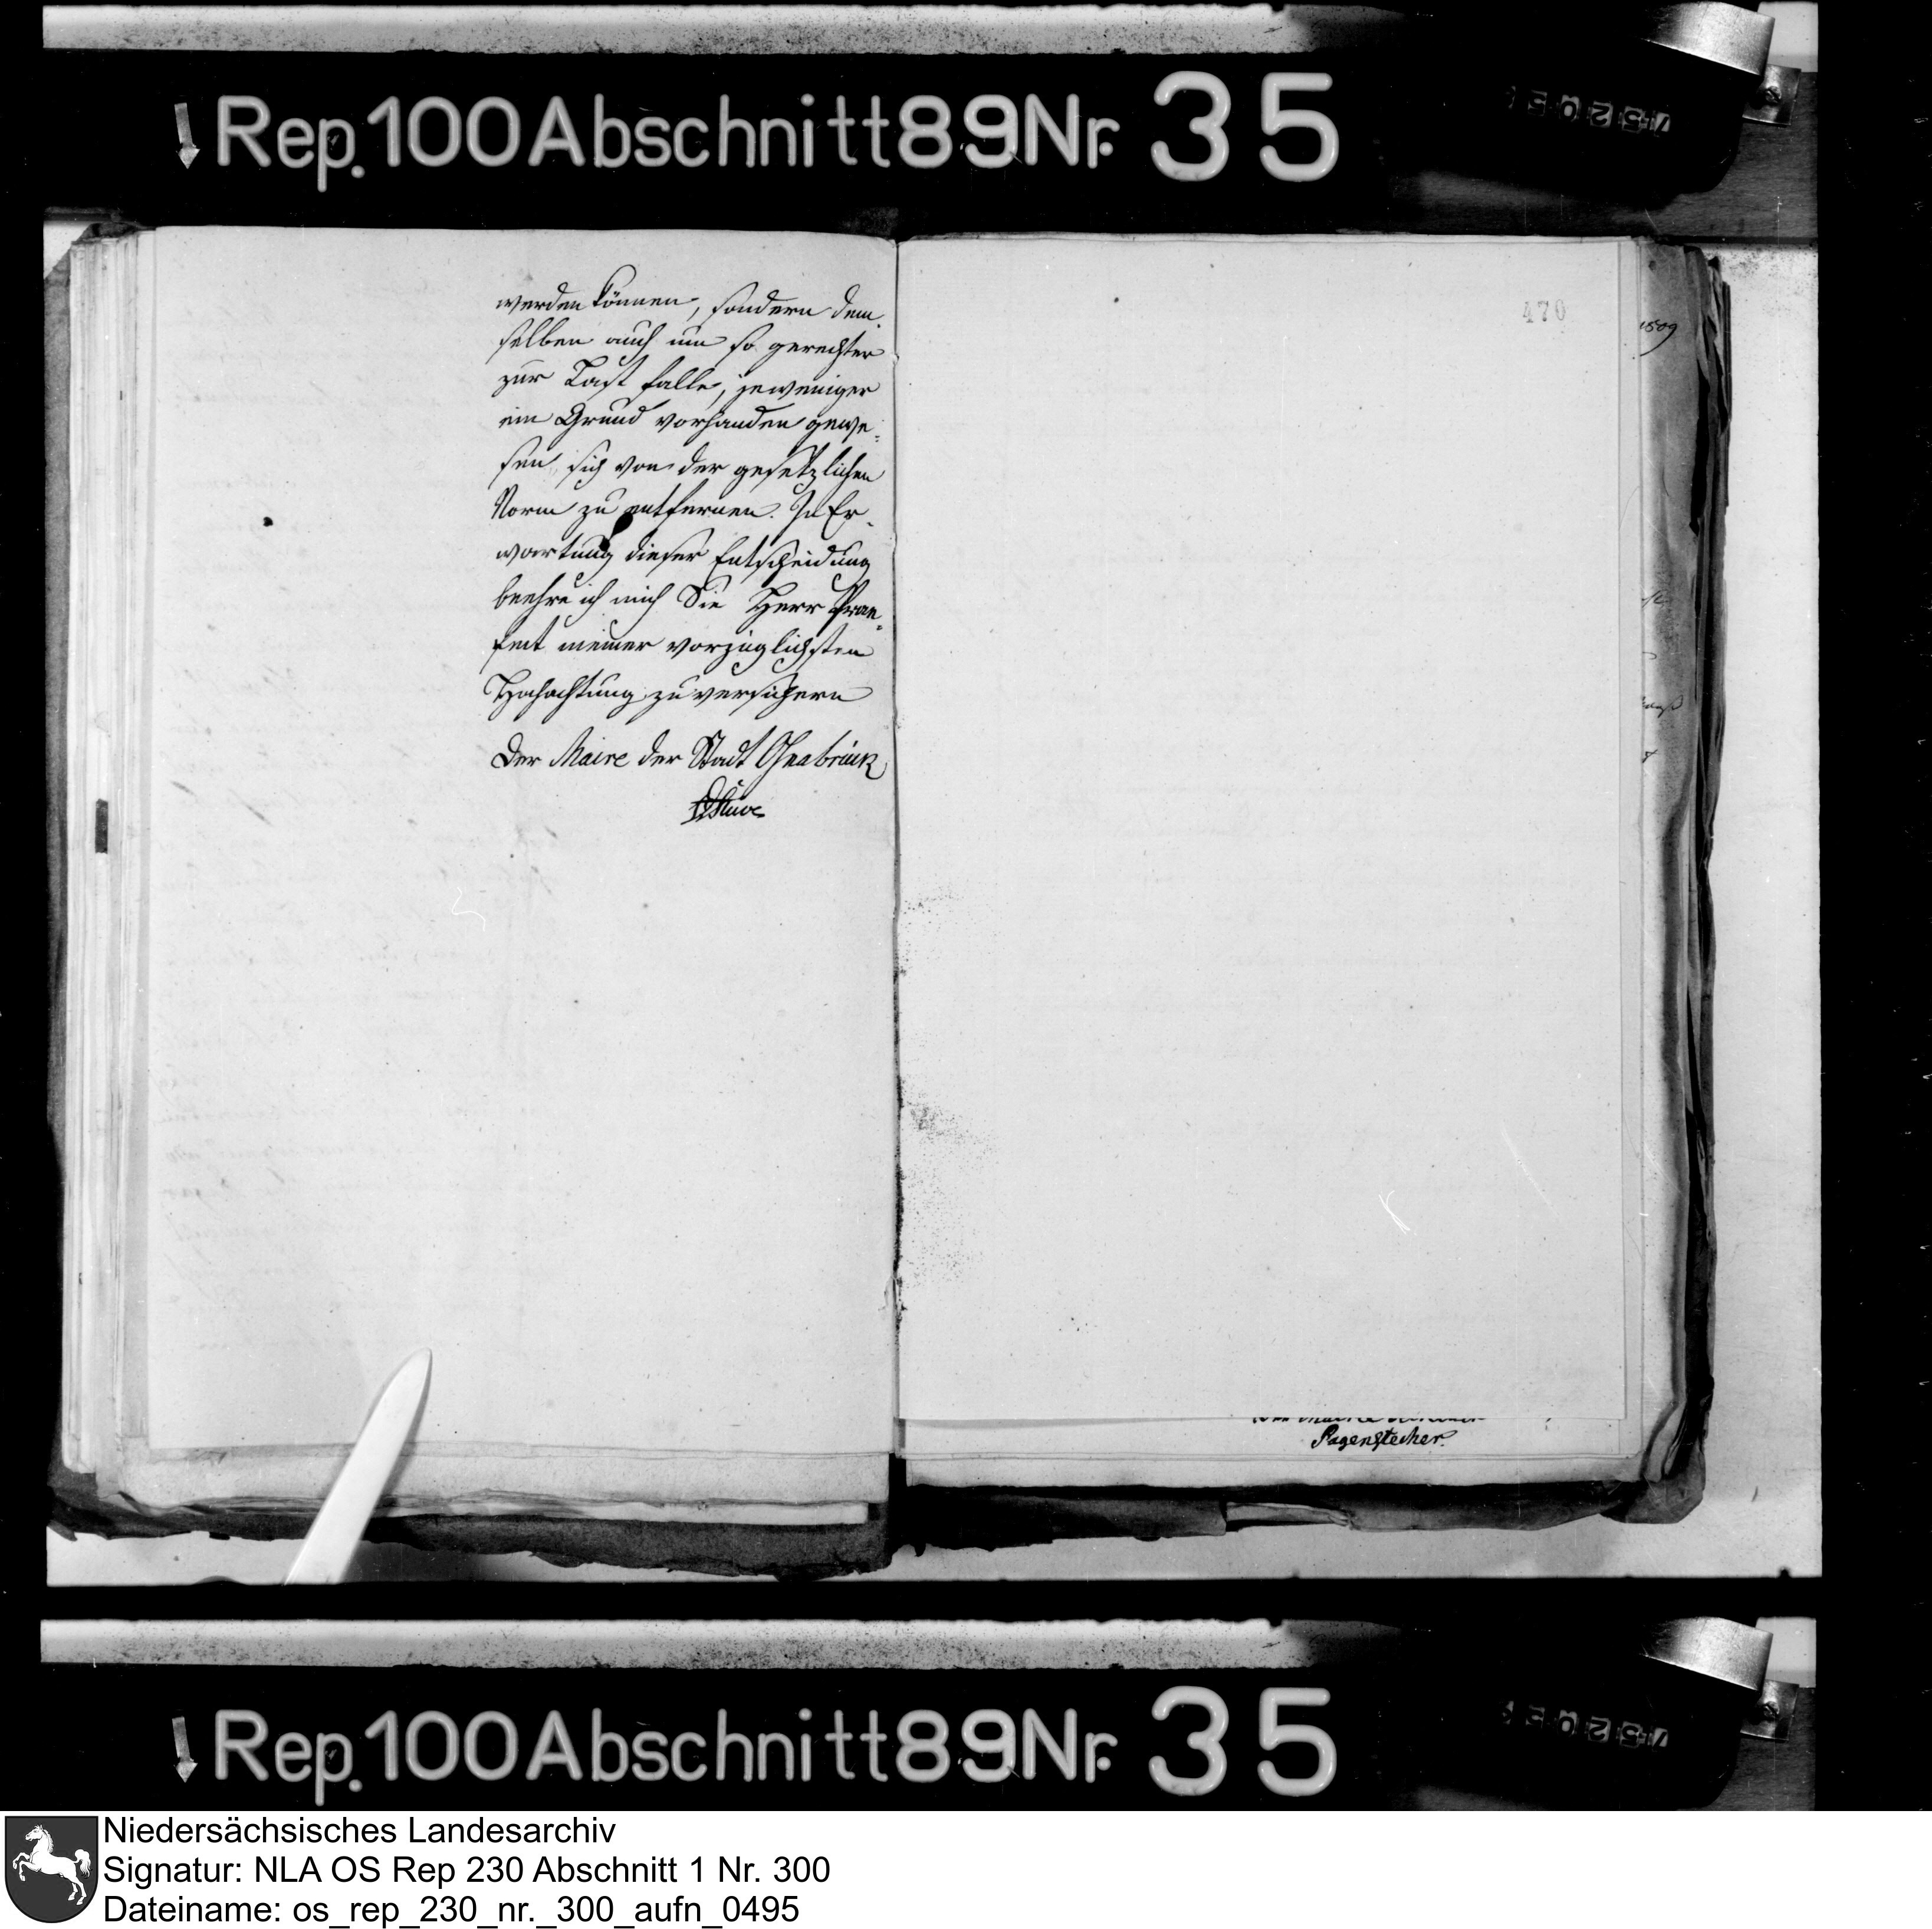 Rep. 100 Abschnitt 89 Nr. 35
werden können, sondern dem-
selben auch um so gerechter
zur Last falle, jeweniger
ein Grund vorhanden gewe-
sen, sich von der gesetzlichen
Norm zu entfernen. In Er-
wartung dieser Entscheidung
beehre ich mich Sie Herr Prae-
fect meiner vorzüglichsten
Hochachtung zu versichern
Der Maire der Stadt Osnabrück
Stüve
470
1809
Pagenstecher.
Rep. 100 Abschnitt 89 Nr. 35
Niedersächsisches Landesarchiv
Signatur: NLA OS Rep 230 Abschnitt 1 Nr. 300
Dateiname: os_rep_230_nr._300_aufn_0495